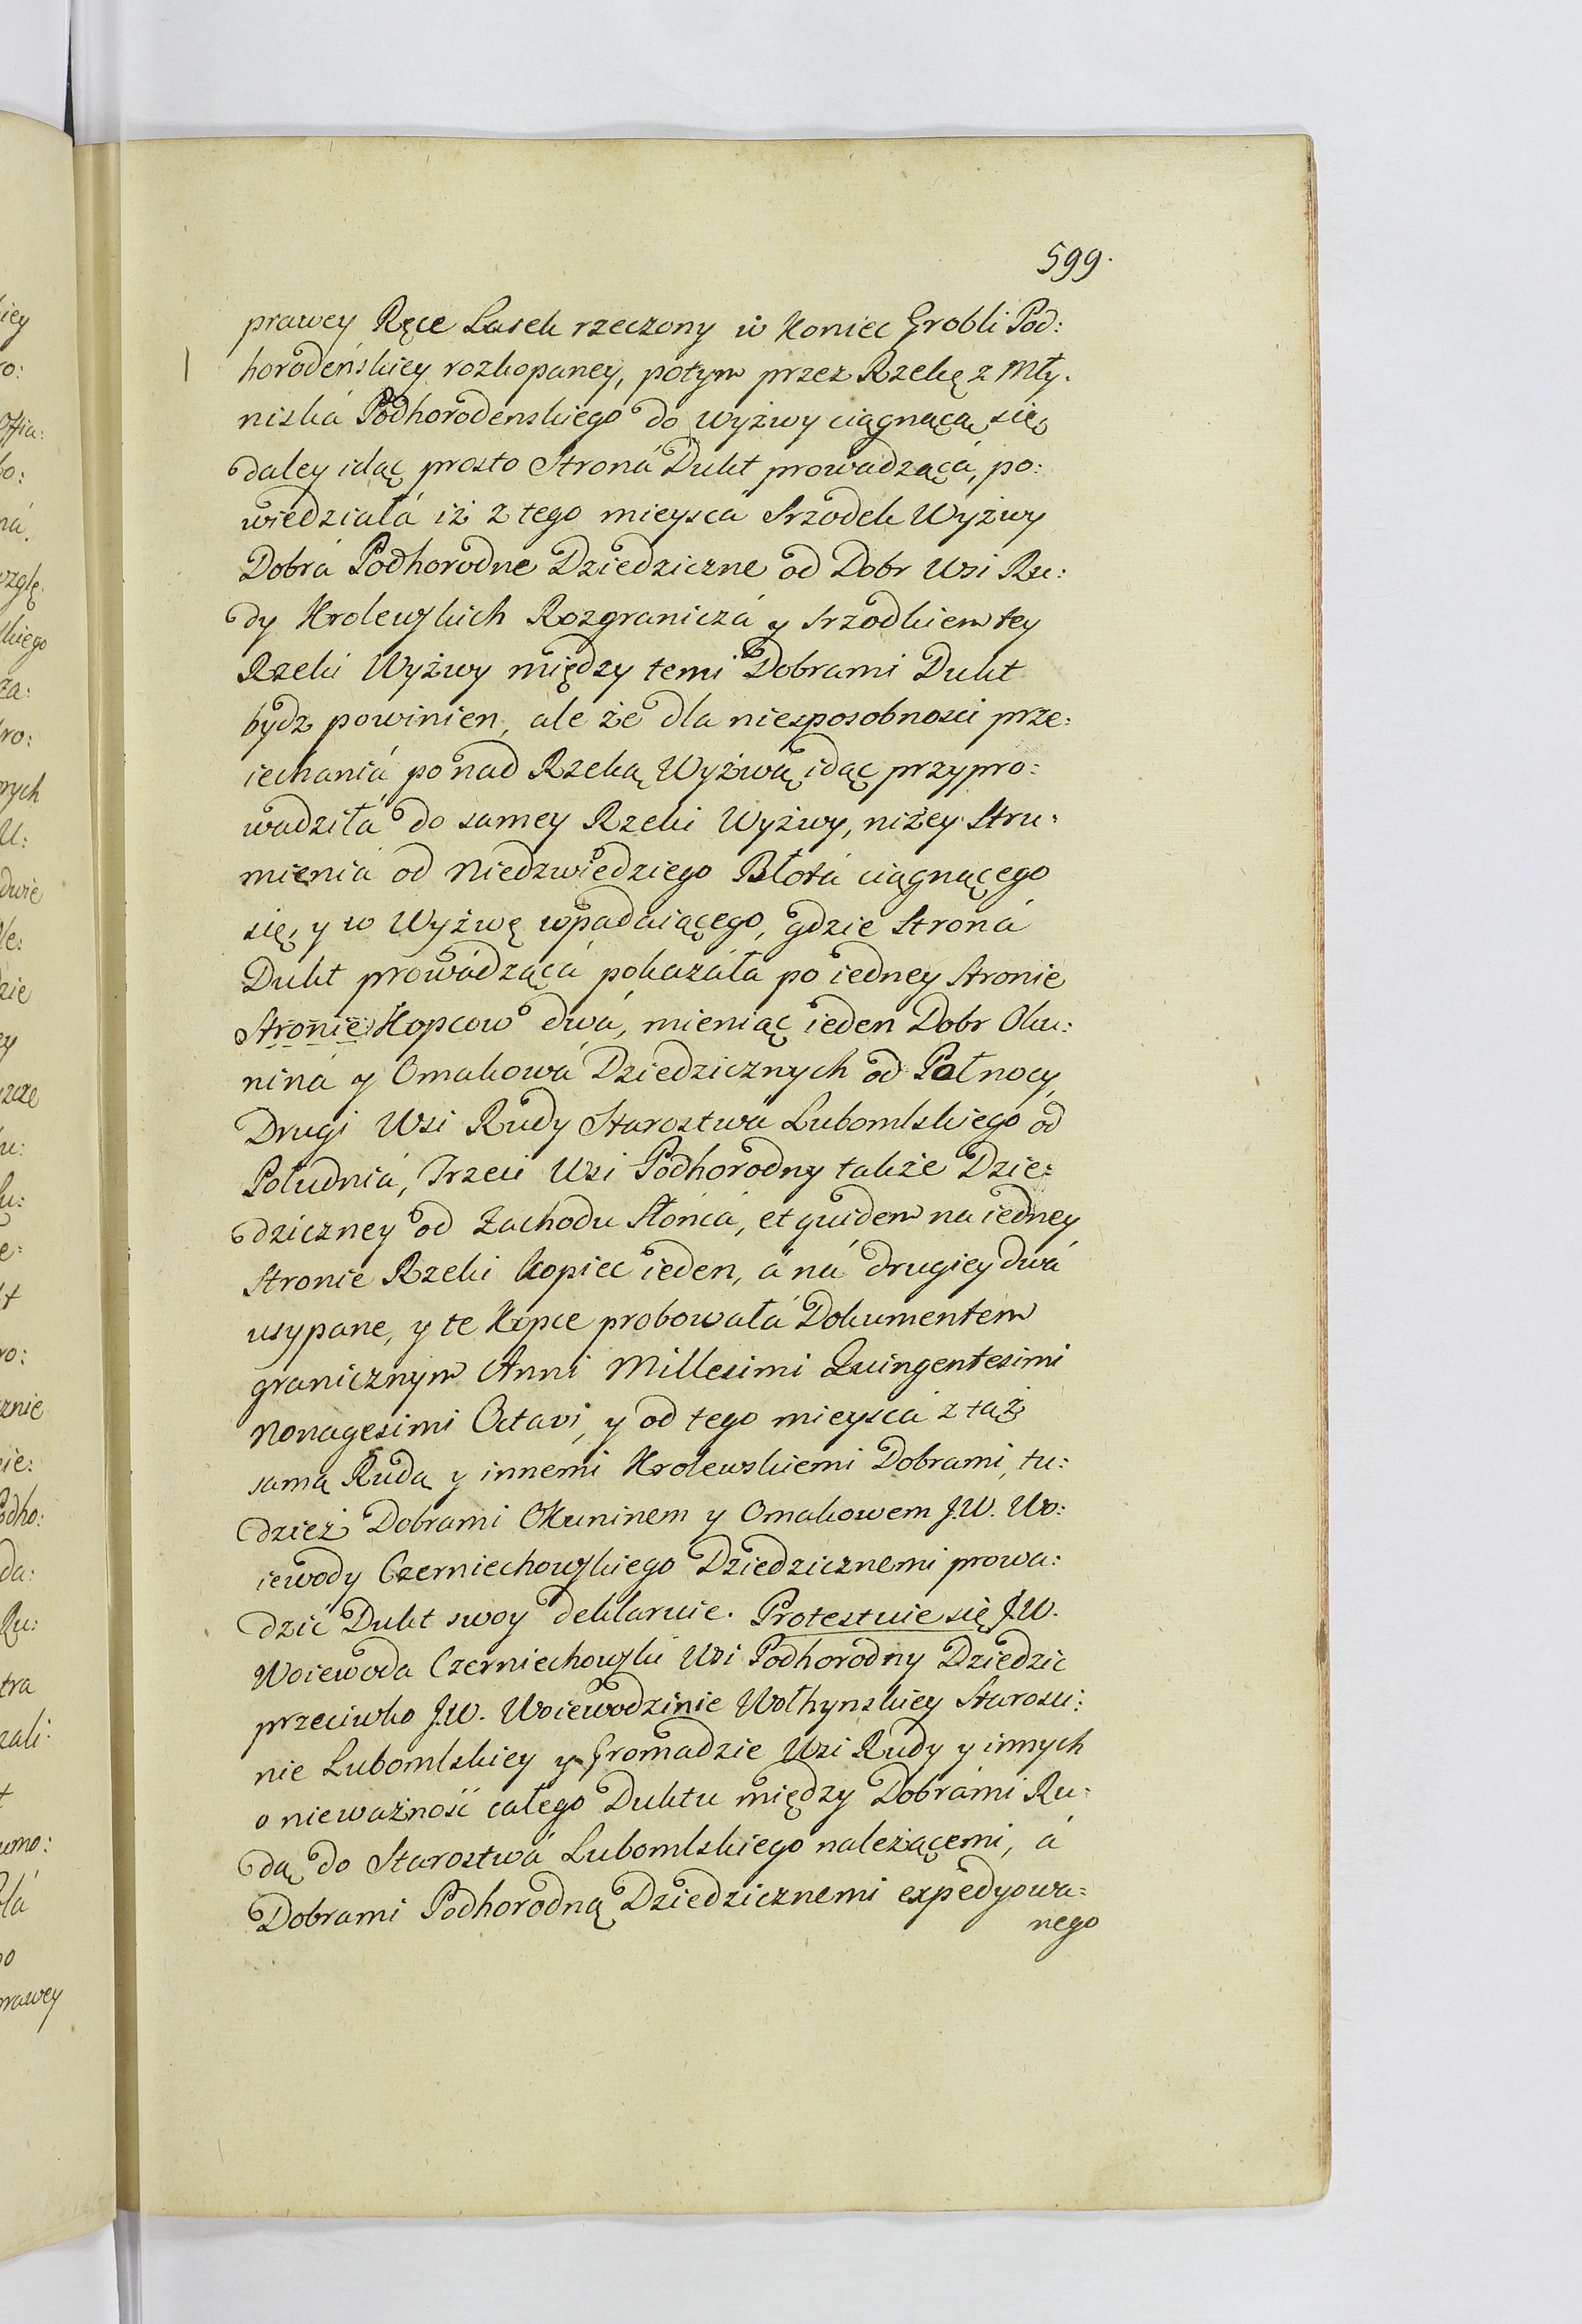 599.
prawey Ręce Lasek rzeczony w Koniec Grobli Pod:
horodeńskiey rozkopaney, potym przez Rzekę z Mły.
niská Podhorodenskiego do Wyżwy ciągnącą się
daley idąc prosto Stroná Dukt prowadzącá, po:
wiedziałá iż z tego mieyscá Srzodek Wyżwy
Dobrá Podhorodne Dziedziczne od Dobr Wsi Ru:
dy Krolewskich Rozgraniczá y srzodkiem tey
Rzeki Wyżwy między temi Dobrami Dukt
bydz powinien, ale że dla niesposobnosci prze:
iechaniá ponad Rzeką Wyżwą idąc przypro:
wadziłá do samey Rzeki Wyżwy, niżey Stru:
mieniá od Niedzwiedziego Błotá ciągnącego
się, y w Wyżwę wpadaiącego, gdzie Stroná
Dukt prowádzącá pokazáła po iedney stronie
Stronie Kopcow dwá, mieniąc ieden Dobr Oku:
niná y Omakowá Dziedzicznych od Połnocy,
Drugi Wsi Rudy Starostwá Lubomlskiego od
Południá, Trzeci Wsi Podhorodny także Dzie:
dziczney od Zachodu Słońcá, et quidem na iedney
Stronie Rzeki kopiec ieden, á ná drugiey dwá
usypane, y te Kopce probowałá Dokumentem
granicznym Anni Millesimi Quingentesimi
Nonagesimi Octavi, y od tego mieyscá z tąż
samą Rudą y innemi Krolewskiemi Dobrami, tu:
dzież Dobrami Okuninem y Omakowem J.W. Wo:
iewody Czerniechowskiego Dziedzicznemi prowa:
dzić Dukt swoy deklaruie. Protestuie się J.W.
Woiewoda Czerniechowski Wsi Podhorodny Dziedzic
przeciwko J.W. Woiewodzinie Wołhynskiey Starosci:
nie Lubomlskiey y Gromadzie Wsi Rudy y innych
o nieważność całego Duktu między Dobrámi Ru:
dą do Starostwá Lubomlskiego należącemi, á
Dobrami Podhorodną Dziedzicznemi expedyowa:
nego